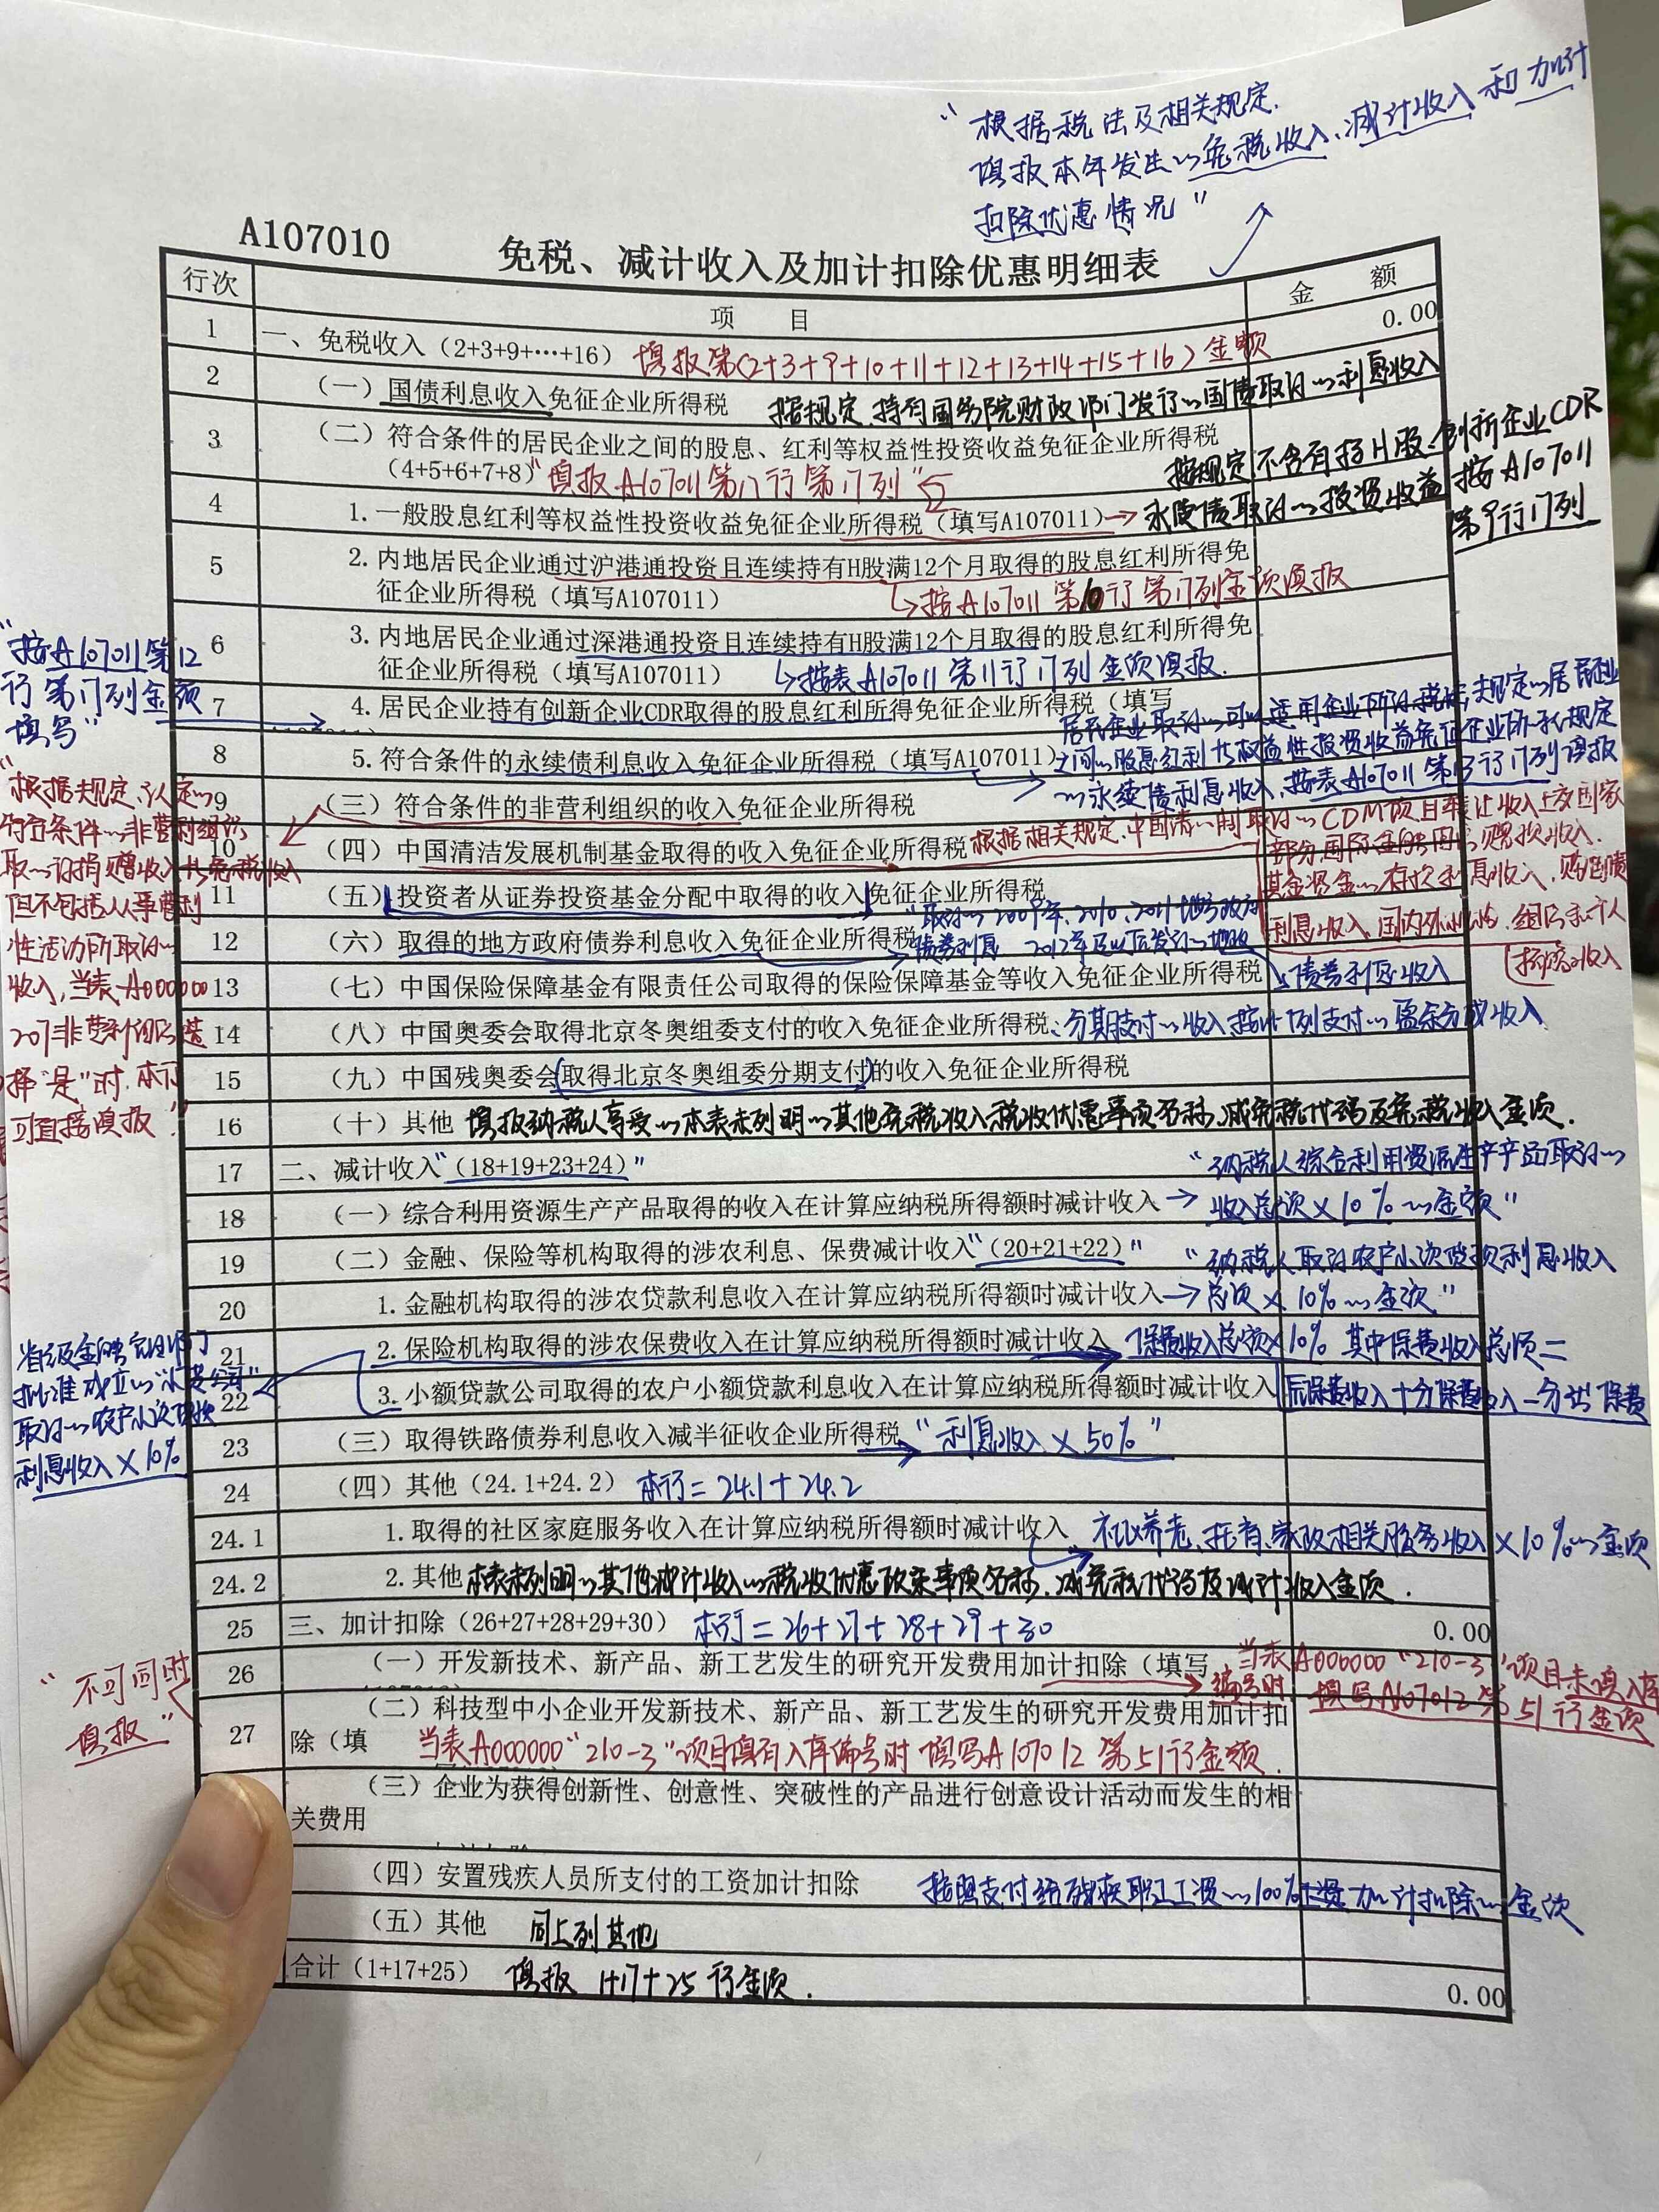 "根据税法及相关规定.
填报本年发生~免税收入、减计收入和加计
扣除优惠情况"
A107010 免税、减计收入及加计扣除优惠明细表
行次 项 目 金 额
1 一、免税收入（2+3+9+…+16） 填报第(2+3+9+10+11+12+13+14+15+16)金额 0.00
2 （一）国债利息收入免征企业所得税 按规定.持有国务院财政部门发行~国债取得~利息收入
3 （二）符合条件的居民企业之间的股息、红利等权益性投资收益免征企业所得税
（4+5+6+7+8） "填报A107011第八行第17列"
按规定不含有持H股、创新企业CDR
4 1.一般股息红利等权益性投资收益免征企业所得税（填写A107011）→永续债取得~投资收益按A107011
第9行17列
5 2.内地居民企业通过沪港通投资且连续持有H股满12个月取得的股息红利所得免
征企业所得税（填写A107011） 按A107011第10行第17列金额填报
6 3.内地居民企业通过深港通投资且连续持有H股满12个月取得的股息红利所得免
征企业所得税（填写A107011） 按表A107011第11行17列金额填报.
"按A107011第12
行第17列金额
填写"
7 4.居民企业持有创新企业CDR取得的股息红利所得免征企业所得税（填写
居民企业取得~可以适用企业所得税法规定~居民企业
8 5.符合条件的永续债利息收入免征企业所得税（填写A107011）
之间~股息红利等权益性投资收益免征企业所得税规定
~永续债利息收入,按表A107011第13行17列填报
9 （三）符合条件的非营利组织的收入免征企业所得税
"根据规定,认定~
符合条件~非营利组织
取~得捐赠收入等免税收入
但不包括从事营利
性活动所取得~
收入,当表A000000
207非营利组织选
择"是"时,本行
可直接填报."
10 （四）中国清洁发展机制基金取得的收入免征企业所得税 根据相关规定.中国清~制取得~CDM项目转让收入上交国家
部分,国际金融组织赠款收入.
基金资金~存款利息收入,购国债
利息收入,国内外机构、组织和个人
捐赠收入
11 （五）投资者从证券投资基金分配中取得的收入免征企业所得税
12 （六）取得的地方政府债券利息收入免征企业所得税
"取得~2009年、2010、2011地方政府
债券利息 2012年及以后发行~地政
债券利息收入
13 （七）中国保险保障基金有限责任公司取得的保险保障基金等收入免征企业所得税
14 （八）中国奥委会取得北京冬奥组委支付的收入免征企业所得税、分期支付~收入按比例支付~盈余分成收入
15 （九）中国残奥委会取得北京冬奥组委分期支付的收入免征企业所得税
16 （十）其他 填报纳税人享受~本表未列明~其他免税收入税收优惠事项名称、减免税代码及免税收入金额.
17 二、减计收入"（18+19+23+24）"
"纳税人综合利用资源生产产品取得~
18 （一）综合利用资源生产产品取得的收入在计算应纳税所得额时减计收入→收入总额×10%~金额"
19 （二）金融、保险等机构取得的涉农利息、保费减计收入"（20+21+22）" "纳税人取得农户小额贷款利息收入
20 1.金融机构取得的涉农贷款利息收入在计算应纳税所得额时减计收入→总额×10%~金额"
21 2.保险机构取得的涉农保费收入在计算应纳税所得额时减计收入 保费收入总额×10% 其中保费收入总额=
22 3.小额贷款公司取得的农户小额贷款利息收入在计算应纳税所得额时减计收入 原保费收入+分保费收入-分出保费
省级金融管理部门
批准成立~"小贷公司"
取得~农户小额贷款
利息收入×10%
23 （三）取得铁路债券利息收入减半征收企业所得税 "利息收入×50%"
24 （四）其他（24.1+24.2） 本行=24.1+24.2
24.1 1.取得的社区家庭服务收入在计算应纳税所得额时减计收入 社区养老、托育、家政相关服务收入×10%~金额
24.2 2.其他 本表未列明~其他减计收入~税收优惠政策事项名称、减免税代码及减计收入金额.
25 三、加计扣除（26+27+28+29+30） 本行=26+27+28+29+30 0.00
26 （一）开发新技术、新产品、新工艺发生的研究开发费用加计扣除（填写
当表A000000"210-3"项目未填入库
编号时 填写A107012第51行金额
"不可同时
填报"
27 （二）科技型中小企业开发新技术、新产品、新工艺发生的研究开发费用加计扣
除（填 当表A000000"210-3"项目填有入库编号时 填写A107012第51行金额.
（三）企业为获得创新性、创意性、突破性的产品进行创意设计活动而发生的相
关费用
（四）安置残疾人员所支付的工资加计扣除 按照支付给残疾职工工资~100%工资加计扣除~金额
（五）其他 同上列其他
合计（1+17+25） 填报 1+17+25行金额. 0.00